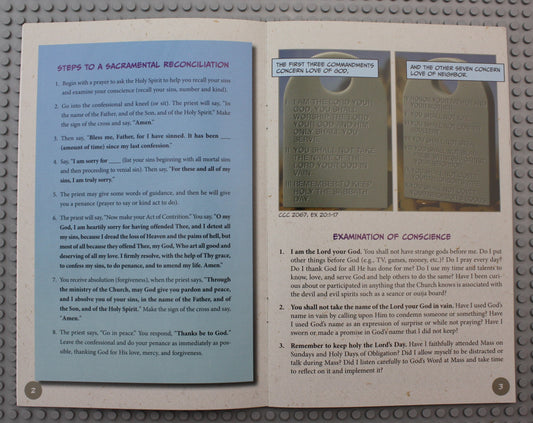 STEPS TO A SACRAMENTAL RECONCILIATION
1. Begin with a prayer to ask the Holy Spirit to help you recall your sins
and examine your conscience (recall your sins, number and kind).
2. Go into the confessional and kneel (or sit). The priest will say, "in
the name of the Father, and of the Son, and of the Holy Spirit." Make
the sign of the cross and say, "Amen."
3. Then say, "Bless me, Father, for I have sinned. It has been ___
(amount of time) since my last confession."
4. Say, "I am sorry for ___ (list your sins beginning with all mortal sins
and then proceeding to venial sin). Then say, "For these and all of my
sins, I am truly sorry."
5. The priest may give some words of guidance, and then he will give
you a penance (prayer to say or kind act to do).
6. The priest will say, "Now make your Act of Contrition." You say, "O my
God, I am heartily sorry for having offended Thee, and I detest all
my sins, because I dread the loss of Heaven and the pains of hell, but
most of all because they offend Thee, my God, Who art all good and
deserving of all my love. I firmly resolve, with the help of Thy grace,
to confess my sins, to do penance, and to amend my life. Amen."
7. You receive absolution (forgiveness), when the priest says, "Through
the ministry of the Church, may God give you pardon and peace,
and I absolve you of your sins, in the name of the Father, and of
the Son, and of the Holy Spirit." Make the sign of the cross and say,
"Amen."
8. The priest says, "Go in peace." You respond, "Thanks be to God."
Leave the confessional and do your penance as immediately as pos-
sible, thanking God for His love, mercy, and forgiveness.
2
THE FIRST THREE COMMANDMENTS
CONCERN LOVE OF GOD,
I I AM THE LORD YOUR
GOD YOU SHALL
WORSHIP THE LORD
YOUR GOD AND HIM
ONLY SHALL YOU
SERVE
II YOU SHALL NOT TAKE
THE NAME OF THE
LORD YOUR GOD IN
VAIN
III REMEMBER TO KEEP
HOLY THE SABBATH
DAY
AND THE OTHER SEVEN CONCERN
LOVE OF NEIGHBOR.
CCC 2067, EX 20:1-17
EXAMINATION OF CONSCIENCE
1. I am the Lord your God. You shall not have strange gods before me. Do I put
other things before God (e.g., TV, games, money, etc.)? Do I pray every day?
Do I thank God for all He has done for me? Do I use my time and talents to
know, love, and serve God and help others to do the same? Have I been curi-
ous about or participated in anything that the Church knows is associated with
the devil and evil spirits such as a seance or ouija board?
2. You shall not take the name of the Lord your God in vain. Have I used God's
name in vain by calling upon Him to condemn someone or something? Have
I used God's name as an expression of surprise or while not praying? Have I
sworn or made a promise in God's name that I did not keep?
3. Remember to keep holy the Lord's Day. Have I faithfully attended Mass on
Sundays and Holy Days of Obligation? Did I allow myself to be distracted or
talk during Mass? Did I listen carefully to God's Word at Mass and take time
to reflect on it and implement it?
3